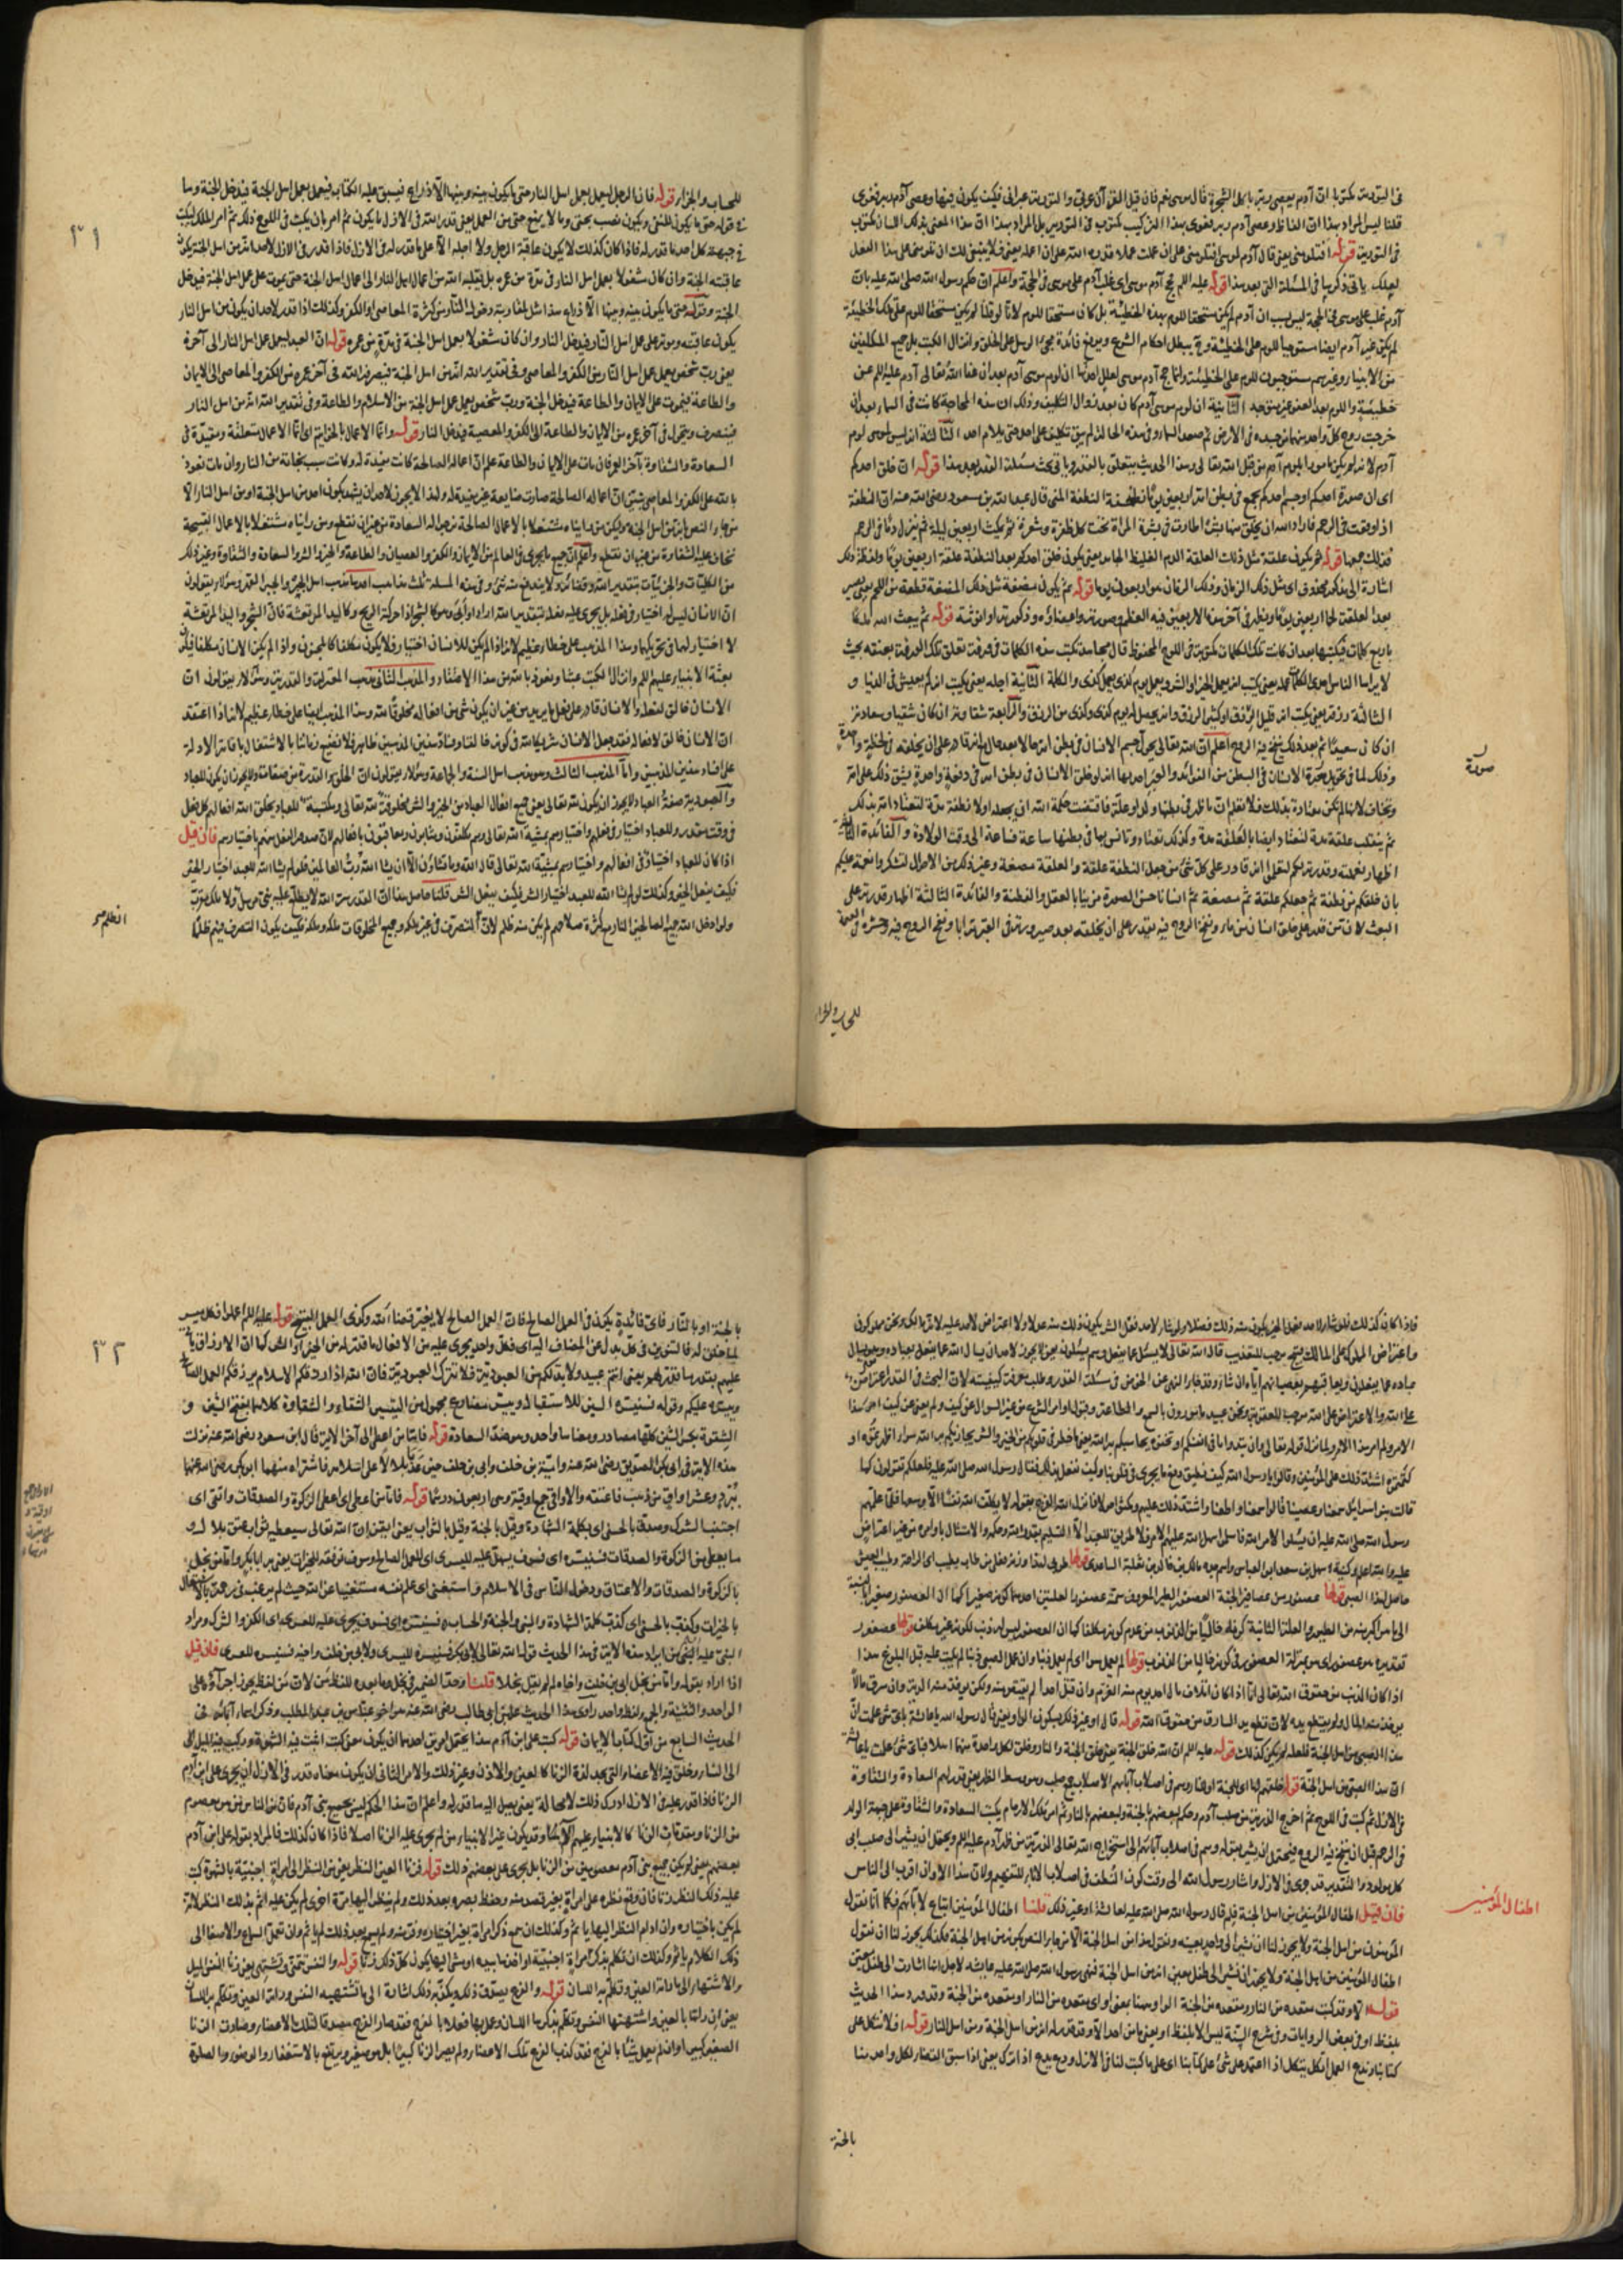 في التورية مكتوبا ان آدم يعصي ربه بأكل الشجرة قال موسى نعم فان قيل القرآن عربي والتورية عبراني فكيف يكون فيها وعصى آدم ربه فغوى
قلنا ليس المراد بهذا ان الفاظ وعصى آدم ربه فغوى بهذا التركيب مكتوب في التورية بل المراد بهذا ان هذا المعنى بذلك اللسان مكتوب
في التورية قوله افتلومني يعني قال آدم لموسى افتلومني على ان عملت عملا قدره الله علي ان اعمله يعني فلا ينبغي لك ان تلومني على هذا الفعل
يأتي ذكرها في المسئلة التي بعد هذا قوله عليه السلم فحج آدم موسى اي غلب آدم على موسى في الحجة واعلم ان حكم رسول الله صلى الله عليه بان
آدم غلب على موسى في الحجة ليس بسبب ان آدم لم يكن مستحقا للوم بهذه الخطيئة بل كان مستحقا للوم لانا لو قلنا لم يكن مستحقا للوم على تلك الخطيئة
لم يكن غير آدم ايضا مستوجبا للوم على الخطيئة وح يبطل احكام الشرع ويرفع فائدة مجئ الرسل على الخلق وانزال الكتب بل جميع المكلفين
من الانبياء وغيرهم مستوجبون للوم على الخطيئة وانما حج آدم موسى لعلل احدها ان لوم موسى آدم بعد ان عفا الله تعالى آدم عليه السلم عن
خطيئته واللوم بعد العفو غير متوجه الثانية ان لوم موسى آدم كان بعد زوال التكليف وذلك ان هذه المحاجة كانت في السماء بعد ان
خرجت روح كل واحد منهما من جسده في الارض ثم صعد السماء وفي هذه الحالة لم يبق تكليف على احد حتى يلام احد الثالثة انه ليس لموسى لوم
آدم لانه لم يكن مامورا بلوم آدم من قبل الله تعالى وهذا الحديث يتعلق بالقدر وياتي بحث مسئلة القدر بعد هذا قوله ان خلق احدكم
اي ان صورة احدكم او جسم احدكم يجمع في بطن امه اربعين يوما نطفة النطفة المني قال عبد الله بن مسعود رضي الله عنه ان النطفة
اذا وقعت في الرحم فاراد الله ان يخلق منها بشرا طارت في بشرة المرأة تحت كل ظفرة وشعرة ثم يمكث اربعين ليلة ثم ينزل دما في الرحم
فذلك جمعها قوله ثم يكون علقة مثل ذلك العلقة الدم الغليظ الجامد يعني يكون خلق احدكم بعد النطفة علقة اربعين يوما ولفظ ذلك
اشارة الى مذكر محذوف اي مثل ذلك الزمان وذلك الزمان هو اربعون يوما قوله ثم يكون مضغة مثل ذلك المضغة قطعة من اللحم يعني يصير
بعد العلقة لحما اربعين يوما ويظهر في آخر هذا الاربعين فيه العظم وصورته واعضاؤه وذكورته او انوثته قوله ثم يبعث الله ملكا
باربع كلمات فيكتبها بعد ان كانت تلك الكلمات مكتوبة في اللوح المحفوظ قال مجاهد تكتب هذه الكلمات في ورقة تعلق تلك الورقة بعنقه بحيث
لا يراها الناس احدى الكلمات عمله يعني يكتب انه يعمل الخير او الشر ويعمل يوم كذا يعمل كذا والكلمة الثانية اجله يعني يكتب انه كم يعيش في الدنيا و
الثالثة رزقه يعني يكتب انه قليل الرزق او كثير الرزق وانه يحصل له يوم كذا وكذا من الرزق والرابعة شقاوته ان كان شقيا وسعادته
ان كان سعيدا ثم بعد ذلك ينفخ فيه الروح اعلم ان الله تعالى يحول جسم الانسان في بطن امه حالا بعد حال مع انه قادر على ان يخلقه في لحظة واحدة
وذلك لما في تحويل صورة الانسان في البطن من الفوائد والعبر احدها انه لو خلق الانسان في بطن امه في دفعة واحدة يشق ذلك على امه
وتخاف لانها لم تكن معتادة بذلك فاقتضت حكمة الله ان يجعله اولا نطفة مدة لتعتاد امه بذلك
ثم ينقلب علقة مدة لتعتاد ايضا بالعلقة مدة وكذلك تعتاد وتانس بها في بطنها ساعة فساعة الى وقت الولادة والفائدة الثانية
اظهار نعمته وقدرته لكم لتعلموا انه قادر على كل شئ من جعل النطفة علقة والعلقة مضغة وغير ذلك من الاحوال لتشكروا نعمه عليكم
بان خلقكم من نطفة ثم جعلكم علقة ثم مضغة ثم انسانا حسن الصورة مزينا بالعقل والفطنة والفائدة الثالثة اظهار قدرته على
البعث لان من قدر على خلق انسان من ماء ونفخ الروح فيه يقدر على ان يخلقه بعد صيرورته في القبر ترابا ونفخ الروح فيه وحشره في القيمة
صورة
للحساب والجزاء
٣١
للحساب والجزاء قوله فان الرجل ليعمل بعمل اهل النار حتى ما يكون بينه وبينها الا ذراع فيسبق عليه الكتاب فيعمل بعمل اهل الجنة فيدخل الجنة وما
في قوله حتى ما يكون للنفي ويكون نصب بحتى وما لا يمنع حتى من العمل يعني قدر الله في الازل ما يكون ثم امر بان يكتب في اللوح ذلك ثم امر الملك ليكتب
في جبهة كل احد ما قدر له فاذا كان كذلك لا يكون عاقبة الرجل ولا اجله الا على ما قدر له في الازل فاذا قدر في الازل لاحد انه من اهل الجنة يكون
عاقبته الجنة وان كان مشغولا بعمل اهل النار في مدة من عمره بل يقلبه الله من اعمال اهل النار الى اعمال اهل الجنة حتى يموت على عمل اهل الجنة فيدخل
الجنة وقوله حتى ما يكون بينه وبينها الا ذراع هذا مثل لمقاربته دخوله النار من كثرة المعاصي او الكفر وكذلك اذا قدر لاحد ان يكون من اهل النار
يكون عاقبته وموته على عمل اهل النار فيدخل النار وان كان مشغولا بعمل اهل الجنة في مدة من عمره قوله ان العبد ليعمل عمل اهل النار الى آخره
يعني رب شخص يعمل عمل اهل النار من الكفر والمعاصي وفي تقدير الله انه من اهل الجنة فيصرفه الله في آخر عمره من الكفر والمعاصي الى الايمان
والطاعة فيموت على الايمان والطاعة فيدخل الجنة ورب شخص يعمل عمل اهل الجنة من الاسلام والطاعة وفي تقدير الله انه من اهل النار
فينصرف ويتحول في آخر عمره من الايمان والطاعة الى الكفر والمعصية فيدخل النار قوله وانما الاعمال بالخواتم اي انما الاعمال متعلقة ومقيدة في
السعادة والشقاوة بآخر العمر فان مات على الايمان والطاعة علم ان اعماله الصالحة كانت مفيدة له وكانت سبب نجاته من النار وان مات نعوذ
بالله على الكفر والمعاصي تبين ان اعماله الصالحة صارت ضايعة غير مفيدة له ولهذا لا يجوز لاحد ان يشهد بكون احد من اهل الجنة او من اهل النار الا
من جاء النص بانه من اهل الجنة ولكن من رايناه مشتغلا بالاعمال الصالحة نرجو له السعادة من غير ان نقطع ومن رايناه مشتغلا بالاعمال القبيحة
نخاف عليه الشقاوة من غير ان نقطع واعلم ان جميع ما يجري في العالم من الايمان والكفر والعصيان والطاعة والخير والشر والسعادة والشقاوة وغير ذلك
من الكليات والجزئيات بتقدير الله وقضائه ولا يندفع منه شئ وفي هذه المسئلة ثلث مذاهب احدها مذهب اهل الجبر وهؤلاء يقولون
ان الانسان ليس له اختيار في فعله بل يجري عليه فعله بتقدير الله اراد او ابى وهو كالشجر اذا حركه الريح وكاليد المرتعشة فان الشجر واليد المرتعشة
لا اختيار لهما في تحركهما وهذا المذهب على خطأ عظيم لانه اذا لم يكن للانسان اختيار فلا يكون مكلفا كالمجنون واذا لم يكن الانسان مكلفا فيكون
بعثة الانبياء عليهم السلم وانزال الكتب عبثا ونعوذ بالله من هذا الاعتقاد والمذهب الثاني مذهب المعتزلة والقدرية وهؤلاء يقولون ان
الانسان خالق لفعله والانسان قادر على فعل ما يريد من غير ان يكون شئ من افعاله مخلوقا لله وهذا المذهب ايضا على خطأ عظيم لانه اذا اعتقد
ان الانسان خالق لافعاله فقد جعل الانسان شريكا لله في كونه خالقا وفساد هذين المذهبين ظاهر فلا نضيع زماننا بالاشتغال باقامة الادلة
على فساد هذين المذهبين واما المذهب الثالث وهو مذهب اهل السنة والجماعة وهؤلاء يقولون ان الخلق والقدرة من صفات الله ولا يجوز ان يكون للعباد
والعبودية صفة العباد ولا يجوز ان يكون لله تعالى يعني جميع افعال العباد من الخير والشر مخلوقة لله تعالى ومكتسبة للعباد يخلق الله افعالهم كل فعل
في وقت مقدر وللعباد اختيار في فعلهم واختيارهم بمشية الله تعالى وهم مكلفون ومثابون ومعاقبون بافعالهم لان صدور الفعل منهم باختيارهم فان قيل
اذا كان للعباد اختيار في افعالهم واختيارهم بمشية الله تعالى قال الله وما تشاؤن الا ان يشاء الله رب العالمين فلو لم يشاء الله للعبد اختيار الخير
فكيف يفعل الخير وكذلك لو لم يشاء الله للعبد اختيار الشر فكيف يفعل الشر قلنا حاصل هذا ان القدر سر الله لا يطلع عليه نبي مرسل ولا ملك مقرب
ولو ادخل الله جميع الصالحين النار مع كثرة صلاحهم لم يكن منه ظلم لان الظلم التصرف في غير ملكه وجميع المخلوقات ملكه وملكه فكيف يكون التصرف فيهم ظلما
انظلم
فاذا كان كذلك فلو شاء لاحد فعل الخير يكون منه ذلك فضلا ولو شاء لاحد فعل الشر يكون ذلك منه عدلا ولا اعتراض لاحد عليه لانه مالك ونحن مملوكون
واعتراض المملوك على المالك قبيح موجب للتعذيب قال الله تعالى لا يسئل عما يفعل وهم يسئلون يعني لا يجوز لاحد ان يسأل الله عما يفعل بعباده وهو يسأل
عباده عما يفعلون ويعاقبهم بعصيانهم اياه ان شاء وقد جاء النهي عن الخوض في مسئلة القدر وطلب معرفة كيفيته لان البحث في القدر اعتراض
على الله والاعتراض على الله موجب للعقوبة ونحن عبيد مامورون بالسمع والطاعة وقبول اوامر الشرع من غير السؤال عن كيف ولم يعني عن كيف امر هذا
الامر ولم امر بهذا الامر ولما نزل قوله تعالى وان تبدوا ما في انفسكم او تخفوه يحاسبكم به الله يعني ما خطر في قلوبكم من الخير والشر يجازيكم به الله سواء اظهرتموه او
كتمتموه اشتد ذلك على المؤمنين وقالوا يا رسول الله كيف نطيق دفع ما يجري في قلوبنا وكيف نفعل بذلك فقال رسول الله صلى الله عليه فلعلكم تقولون كما
قالت بنو اسرائيل سمعنا وعصينا قالوا سمعنا واطعنا واشتد ذلك عليهم ومكثوا حولا فانزل الله الفرج بقوله لا يكلف الله نفسا الا وسعها فلما علمهم
رسول الله صلى الله عليه ان يسلموا الامر الى الله فاسلموا سهل الله عليهم الامر فلا طريق للعبد الا التسليم بقدر الله وحكمه والامتثال باوامره من غير اعتراض
عليه والله اعلم كنية سهل بن سعد ابو العباس واسم جده مالك بن خالد بن ثعلبة الساعدي قولها طوبى لهذا وزنه فعلى من طاب يطيب اي الراحة وطيب العيش
حاصل لهذا الصبي قولها عصفور من عصافير الجنة العصفور الطير المعروف سمته عصفورا لعلتين احديهما كونه صغيرا كما ان العصفور صغير بالنسبة
الى ما هو اكبر منه من الطيور والعلة الثانية كونه خاليا من الذنوب من عدم كونه مكلفا كما ان العصفور ليس له ذنب لكونه غير مكلف قولها عصفور
تقديره هو عصفور اي هو بمنزلة العصفور في كونه خاليا من الذنوب قولها لم يعمل سوءا اي لم يعمل ذنبا وان عمل الصبي ذنبا لم يكتب عليه قبل البلوغ هذا
اذا كان الذنب من حقوق الله تعالى اما اذا كان اتلاف مال احد يؤخذ منه الغرم وان قتل احدا لم يقتص منه ولكن يؤخذ منه الدية وان سرق مالا
يؤخذ منه المال ولم يقطع يده لان قطع يد السارق من حقوق الله قوله قال او غير ذلك بسكون الواو يعني قال رسول الله يا عائشة باي شئ علمت ان
هذا الصبي من اهل الجنة فلعله لم يكن كذلك قوله عليه السلم ان الله خلق الجنة يعني خلق الجنة والنار وخلق لكل واحدة منهما اهلا فباي شئ علمت يا عائشة
ان هذا الصبي من اهل الجنة قوله خلقهم لها اي للجنة او للنار وهم في اصلاب آبائهم الاصلاب جمع صلب وهو وسط الظهر يعني قدر لهم السعادة والشقاوة
في الازل ثم كتب في اللوح ثم اخرج الذرية من صلب آدم وحكم لبعضهم بالجنة ولبعضهم بالنار ثم امر ملك الارحام بكتب السعادة والشقاوة على جبهة الولد
في الرحم قبل ان ينفخ فيه الروح فيحتمل ان يشير بقوله وهم في اصلاب آبائهم الى استخراج الله تعالى الذرية من ظهر آدم عليه السلم ويحتمل ان يشير الى صلب ابي
كل مولود والتقدير قد جرى في الازل واشار رسول الله الى وقت كون النطف في اصلاب الآباء للتفهيم ولان هذا الاوان اقرب الى الناس
فان قيل اطفال المؤمنين من اهل الجنة فلم قال رسول الله صلى الله عليه لعائشة او غير ذلك قلنا اطفال المؤمنين اتباع لآبائهم فكما انا نقول
المؤمنون من اهل الجنة ولا يجوز لنا ان نشير الى واحد بعينه ونقول هذا من اهل الجنة الا من جاء النص بكونه من اهل الجنة فكذلك يجوز لنا ان نقول
اطفال المؤمنين من اهل الجنة ولا يجوز ان نشير الى طفل معين انه من اهل الجنة فنهى رسول الله صلى الله عليه عائشة لاجل انها اشارت الى طفل معين
قوله الا وقد كتب مقعده من النار ومقعده من الجنة الواو ههنا بمعنى او اي مقعده من النار او مقعده من الجنة وقد ورد هذا الحديث
بلفظ او في بعض الروايات وفي شرح السنة ليس الا بلفظ او يعني ما من احد الا وقد قدر له انه من اهل الجنة ومن اهل النار قوله افلا نتكل على
كتابنا وندع العمل اتكل يتكل اذا اعتمد على شئ على كتابنا اي على ما كتب لنا في الازل ودع يدع اذا ترك يعني اذا سبق القضاء لكل واحد منا
اطفال المؤمنين
بالجنة
٣٢
بالجنة او بالنار فاي فائدة يكون في العمل الصالح فان العمل الصالح لا يغير قضاء الله وكذا العمل القبيح قوله عليه السلم اعملوا فكل ميسر
لما خلق له فالتنوين في كل بدل عن المضاف اليه اي فكل واحد يجري عليه من الافعال ما قدر له من الخير او الشر كما ان الارزاق ياتي
عليهم بقدر ما قدر لهم يعني انتم عبيد ولا بد لكم من العبودية فلا تترك العبودية فان الله اذا اراد لكم الاسلام يرزقكم العمل الصالح
وييسره عليكم وقوله فسنيسره السين للاستقبال ويسر مضارع مجهول من التيسير الشقاء والشقاوة كلاهما بفتح الشين و
الشقوة بكسر الشين كلها مصادر ومعناها واحد وهو ضد السعادة قوله فاما من اعطى الى آخر الآية قال ابن مسعود رضي الله عنه نزلت
هذه الآية في ابي بكر الصديق رضي الله عنه وامية بن خلف وابي بن خلف حين عذبا بلالا على اسلامه فاشتراه منهما ابو بكر رضي الله عنه
ببردة وعشر اواق من ذهب فاعتقه والاواقي جمع اوقية وهي اربعون درهما قوله فاما من اعطى اي اعطى الزكوة والصدقات واتقى اي
اجتنب الشرك وصدق بالحسنى اي بكلمة الشهادة وقيل بالجنة وقيل بالثواب يعني ايقن ان الله تعالى سيعطيه ثوابا بعتق بلال و
ما يعطي من الزكوة والصدقات فسنيسره اي فسوف يسهل عليه لليسرى اي للعمل الصالح وسوف نوفقه للخيرات يعني به ابا بكر واما من بخل
بالزكوة والصدقات والاعتاق ودخول الناس في الاسلام واستغنى اي علم نفسه مستغنيا عن الله حيث لم يرغب في
بالخيرات وكذب بالحسنى اي كذب كلمة الشهادة والنبي والجنة والحساب فسنيسره اي فسوف يجري عليه للعسرى اي الكفر والشرك ومراد
النبي عليه السلم من ايراد هذه الآية في هذا الحديث قوله تعالى لابي بكر فسنيسره لليسرى ولابي بن خلف واخيه فسنيسره للعسرى فان قيل
اذا اراد بقوله واما من بخل ابي بن خلف واخاه لم لم يقل بخلا قلنا وحد الضمير في بخل وما بعده للفظ من لان من لفظ يجوز اجراؤه على
الواحد والتثنية والجمع ولفظه واحد راوي هذا الحديث علي بن ابي طالب رضي الله عنه
الحديث السابع من اول كتاب الايمان قوله كتب على ابن آدم هذا يحتمل امرين احدهما ان يكون معنى كتب اثبت فيه الشهوة وركب فيه الميل
الى النساء وخلق فيه الاعضاء التي يجد لذة الزنا كالعين والاذن وغير ذلك والامر الثاني ان يكون معناه قدر في الازل ان يجري على ابن آدم
الزنا فاذا قدر عليه في الازل ادرك ذلك لا محالة يعني يصل اليه ما قدر له واعلم ان هذا الحكم ليس بجميع بني آدم فان من الناس من هو معصوم
من الزنا ومقدمات الزنا كالانبياء عليهم السلم وقد يكون غير الانبياء من لم يجر عليه الزنا اصلا فاذا كان كذلك فالمراد بقوله على ابن آدم
بعضهم يعني لم يكن جميع بني آدم معصومين من الزنا بل يجري على بعضهم ذلك قوله فزنا العين النظر يعني من النظر الى امراة اجنبية بالشهوة كتب
عليه ذلك النظر زنا فان وقع نظره على امراة بغير قصد منه وحفظ بصره بعد ذلك ولم ينظر اليها مرة اخرى لم يكن عليه اثم بذلك النظر لانه
لم يكن باختياره وان ادام النظر اليها ياثم وكذلك ان سمع ذكر امراة بغير اختياره وقصده ولم يسمع بعد ذلك لم ياثم وان تعمد السماع والاصغاء الى
ذلك الكلام ياثم وكذلك ان تكلم بذكر امراة اجنبية او اخذها بيده او مشى اليها يكون كل ذلك زنا قوله والنفس تتمنى وتشتهي يعني زنا النفس الميل
والاشتهاء الى ما رات العين وتكلم به اللسان قوله والفرج يصدق ذلك ويكذبه ذلك اشارة الى ما تشتهيه النفس ورات العين وتكلم به اللسان
يعني ان راتها بالعين واشتهتها النفس وتكلم بذكرها اللسان وعمل بها فعلا بالفرج فقد صار الفرج مصدقا لتلك الاعضاء وصارت الزنا
الصغير كبيرا وان لم يعمل شيئا بالفرج فقد كذب الفرج تلك الاعضاء ولم يصر الزنا كبيرا بل هو صغير ويرتفع بالاستغفار والوضوء والصلوة